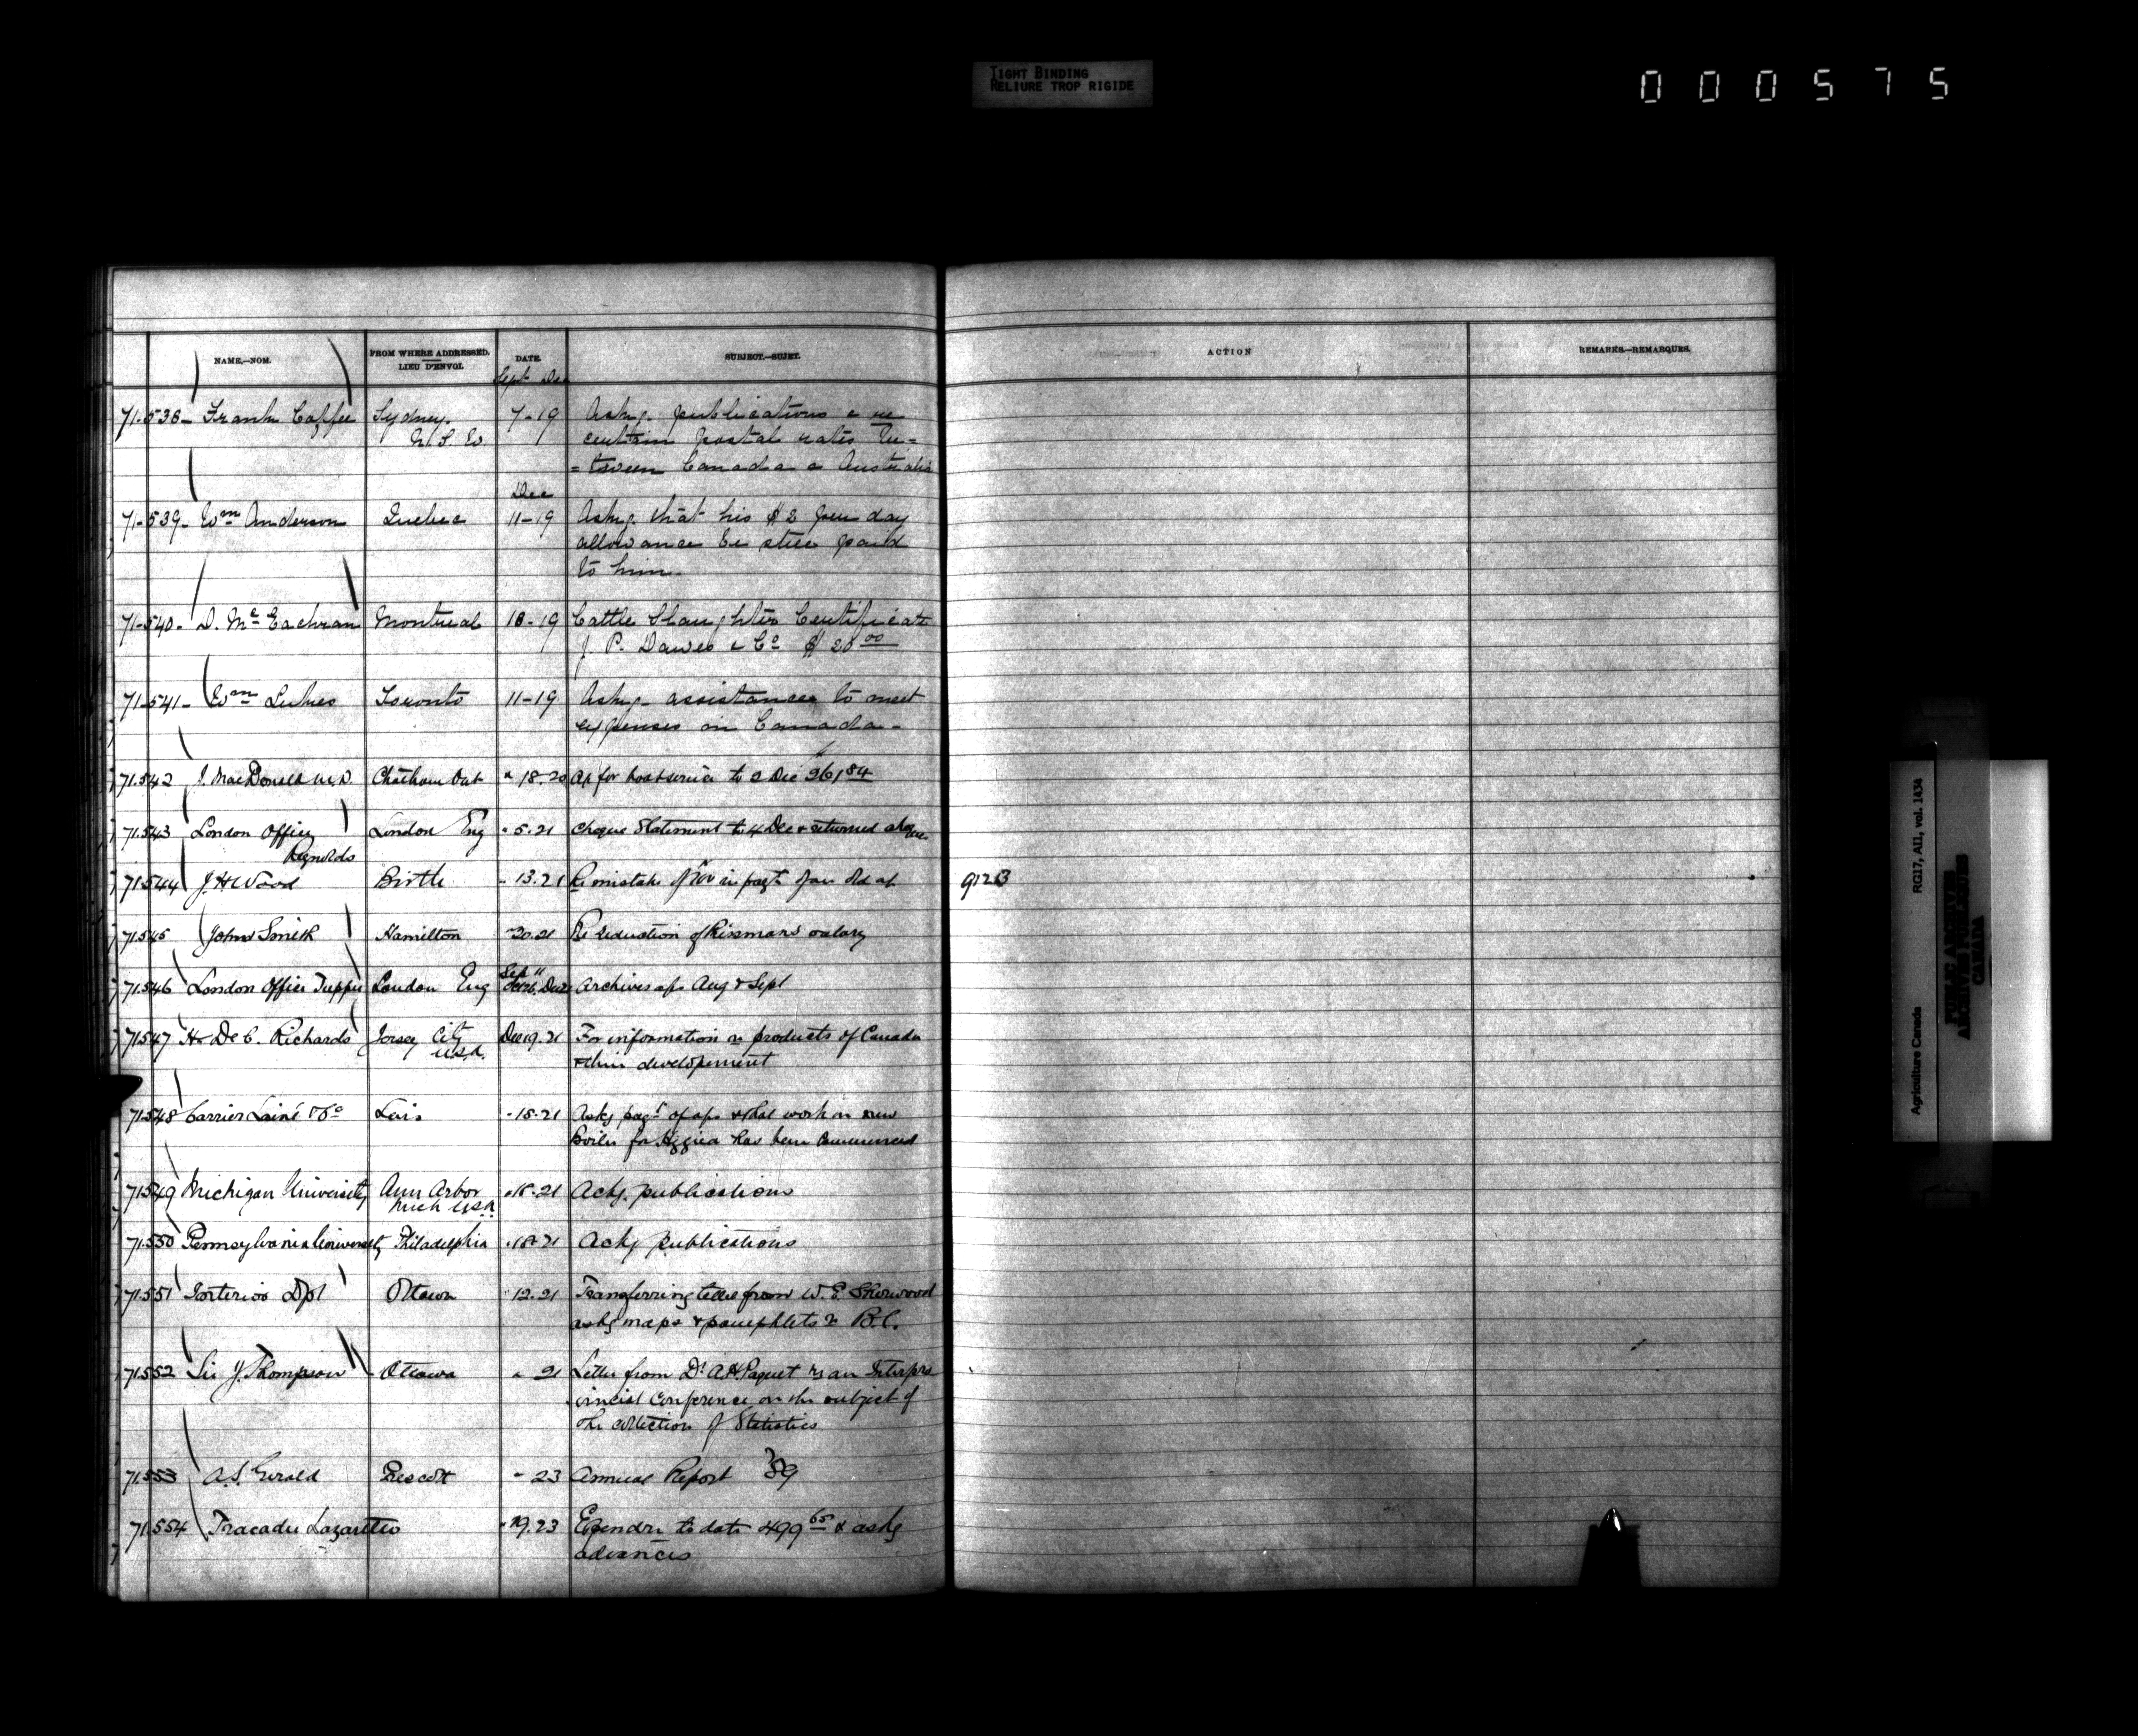 TIGHT BINDING
RELIURE TROP RIGIDE
000575
NAME.—NOM.
FROM WHERE ADDRESSED.
LIEU D'ENVOI.
DATE.
SUBJECT.—SUJET.
ACTION
REMARKS.—REMARQUES.
Sept Dec
71-538- Frank Coffee Sydney. 7-19 Askg. publications & re
N. S. W certain postal rates be=
=tween Canada & Australia
Dec
71-539- Wm Anderson Quebec 11-19 Askg. that his $2 per day
allowance be still paid
to him.
71-540- D. Mc Eachran Montreal 18-19 Cattle Slaughter Certificate
J. P. Dawes & Co $ 20 00
71-541- Wm Lukes Toronto 11-19 Askg- assistance to meet
expenses in Canada-
71.542 J. MacDonald M.D. Chatham Ont " 18.20 A/c for boat service to 2 Dec 26/84
71.543 London Office London Eng " 5.21 Cheque Statement to 4 Dec & returned cheques
Reynolds
71.544 J H Wood Birtle " 13.21 Re mistake of in payt of an old a/c 9123
71.545 John Smith Hamilton " 20.21 Re reduction of salary
Sep 11
71.546 London Office Tupper London Eng Dec 21 Archives a/c Aug & Sept
71.547 H. De C. Richards Jersey City Dec 19.21 For information re products of Canada
U.S.A. & their development
71.548 Carrier Lainé & Co Levis " 18.21 Askg payt of a/cs & that work on new
Boiler for Hygiea has been commenced
71.549 Michigan University Ann Arbor " 18.21 Ackg. publications
Mich USA.
71.550 Pennsylvania University Philadelphia " 18.21 Ackg publications
71.551 Interior Dpt Ottawa " 12.21 Transferring letter from W. E. Sherwood
askg maps & pamphlets re B.C.
71.552 Sir J. Thompson Ottawa " 21 Letter from Dr A.H. Paquet re an Interpro
vincial Conference on the subject of
the collection of Statistics
71.553 A.S. Gerald Prescott " 23 Annual Report 89
71.554 Tracadie Lazaretto " 19.23 Expendre to date 499 65 & askg
advances
Agriculture Canada RG17, AII, vol. 1434
PUBLIC ARCHIVES
ARCHIVES PUBLIQUES
CANADA